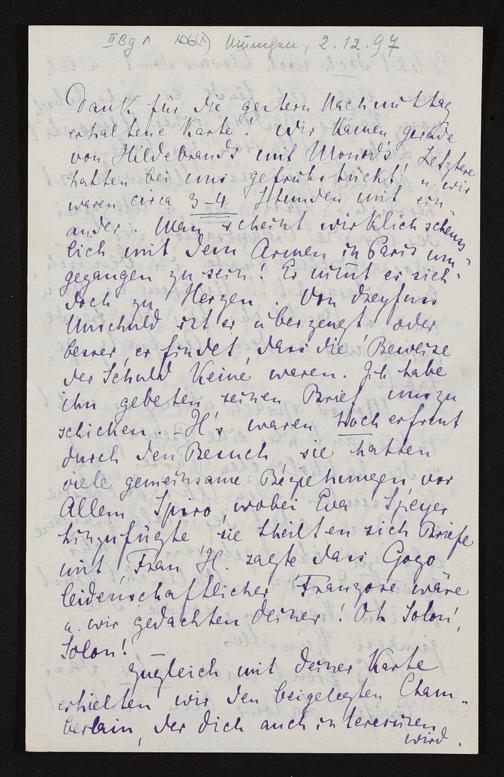 II Bg 1 106(1) München, 2.12.97
Dank für die gestern Nachmittag
erhaltene Karte. Wir kamen gerade
von Hildebrands mit Monods, Letztere
hatten bei uns gefrühstückt, u. wir
waren circa 3-4 Stunden mit ein-
ander. Man scheint wirklich scheuss-
lich mit dem Armen in Paris um-
gegangen zu sein! Er nimt es sich
doch zu Herzen. Von Dreyfuss
Unschuld ist er überzeugt oder
besser er findet, dass die Beweise
der Schuld keine waren. Ich habe
ihn gebeten, seinen Brief uns zu
schicken. H's waren hoch erfreut
durch den Besuch sie hatten
viele gemeinsame Beziehungen vor
Allem Spiro, wobei Eva Speyer
hinzufügte sie theilten sich Briefe
mit. Frau H. sagte dass Gogo
leidenschaftlicher Franzose wäre
u. wir gedachten Deiner! Oh Solon,
Solon!
Zugleich mit Deiner Karte
erhielten wir den beigelegten Cham-
berlain, der Dich auch interessiren
wird.